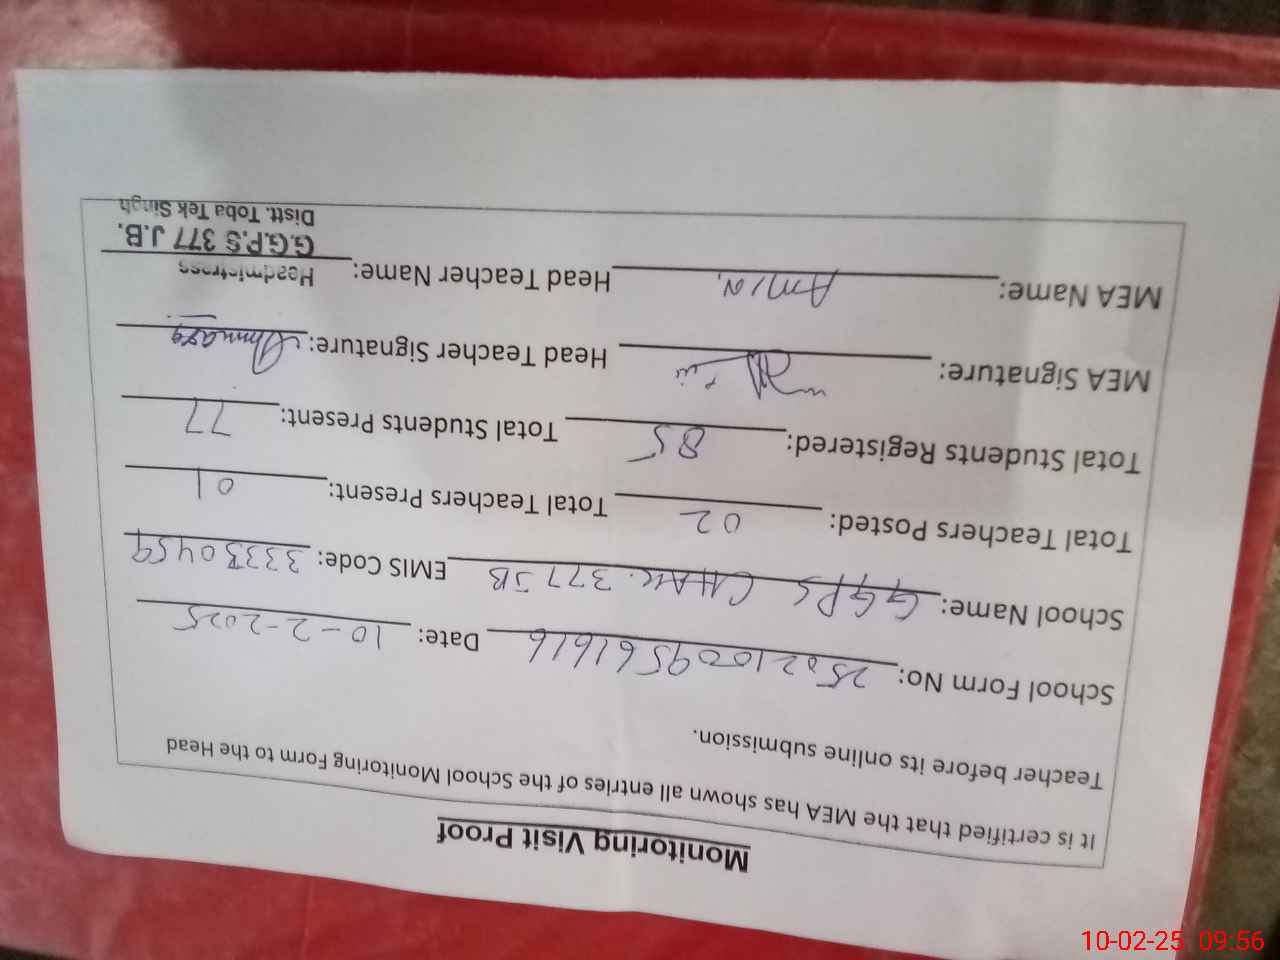 Monitoring Visit Proof
It is certified that the MEA has shown all entries of the School Monitoring Form to the Head
Teacher before its online submission.
School Form No: 25021009561616 Date: 10-2-2025
School Name: GGPS CHAK. 377 JB EMIS Code: 33330459
Total Teachers Posted: 02 Total Teachers Present: 01
Total Students Registered: 85 Total Students Present: 77
MEA Signature: Head Teacher Signature:
MEA Name: AMIN, Head Teacher Name: Headmistress
G.G.P.S 377 J.B.
Distt. Toba Tek Singh
10-02-25 09:56